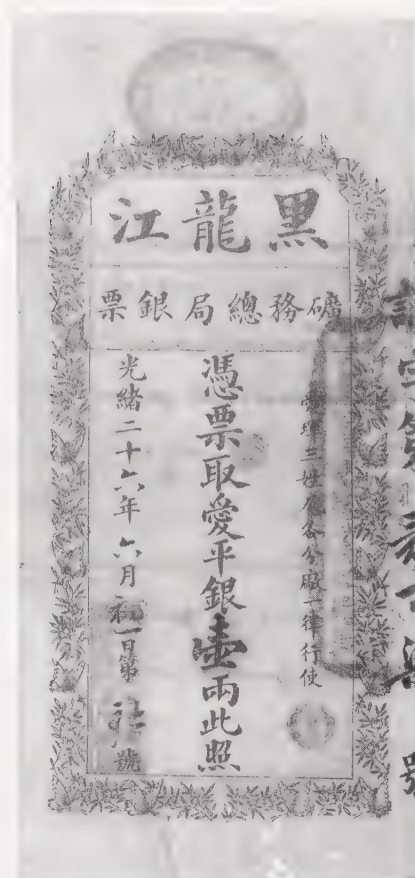 黑龍江
礦務總局銀票
愛琿三姓各分廠一律行使
憑票取愛平銀壹兩此照
光緒二十六年六月初一日第
號
號